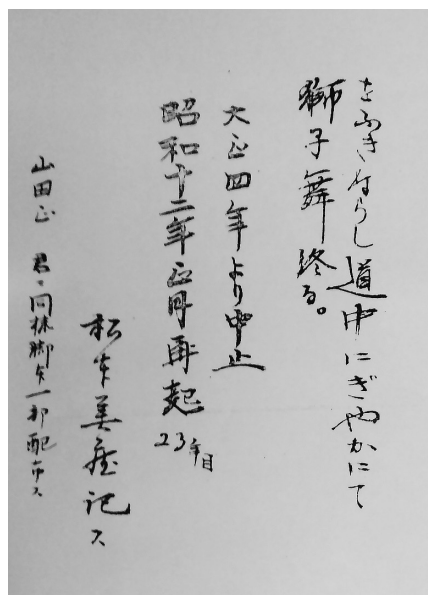 をふきならし道中にぎやかにて
獅子舞終る。
大正四年より中止
昭和十二年正月再起 23年目
松本美記ス
山田正 君ニ同様脚本一部配布ス